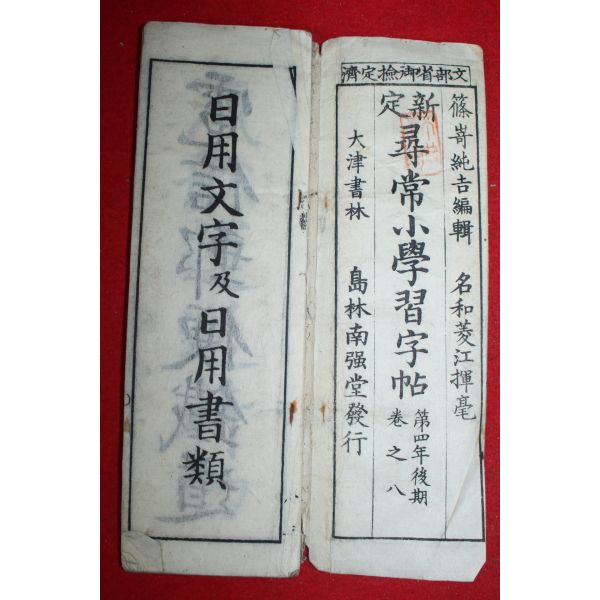 文部省御檢定濟
篠嵜純吉編輯 名和菱江揮毫
新定
尋常小學習字帖
第四年後期
卷之八
大津書林 島林南强堂發行
日用文字及日用書類